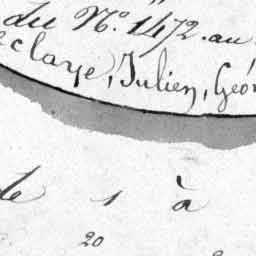 du N.º 1472. au
eclaye, Julien, Géo
de 1 à
20